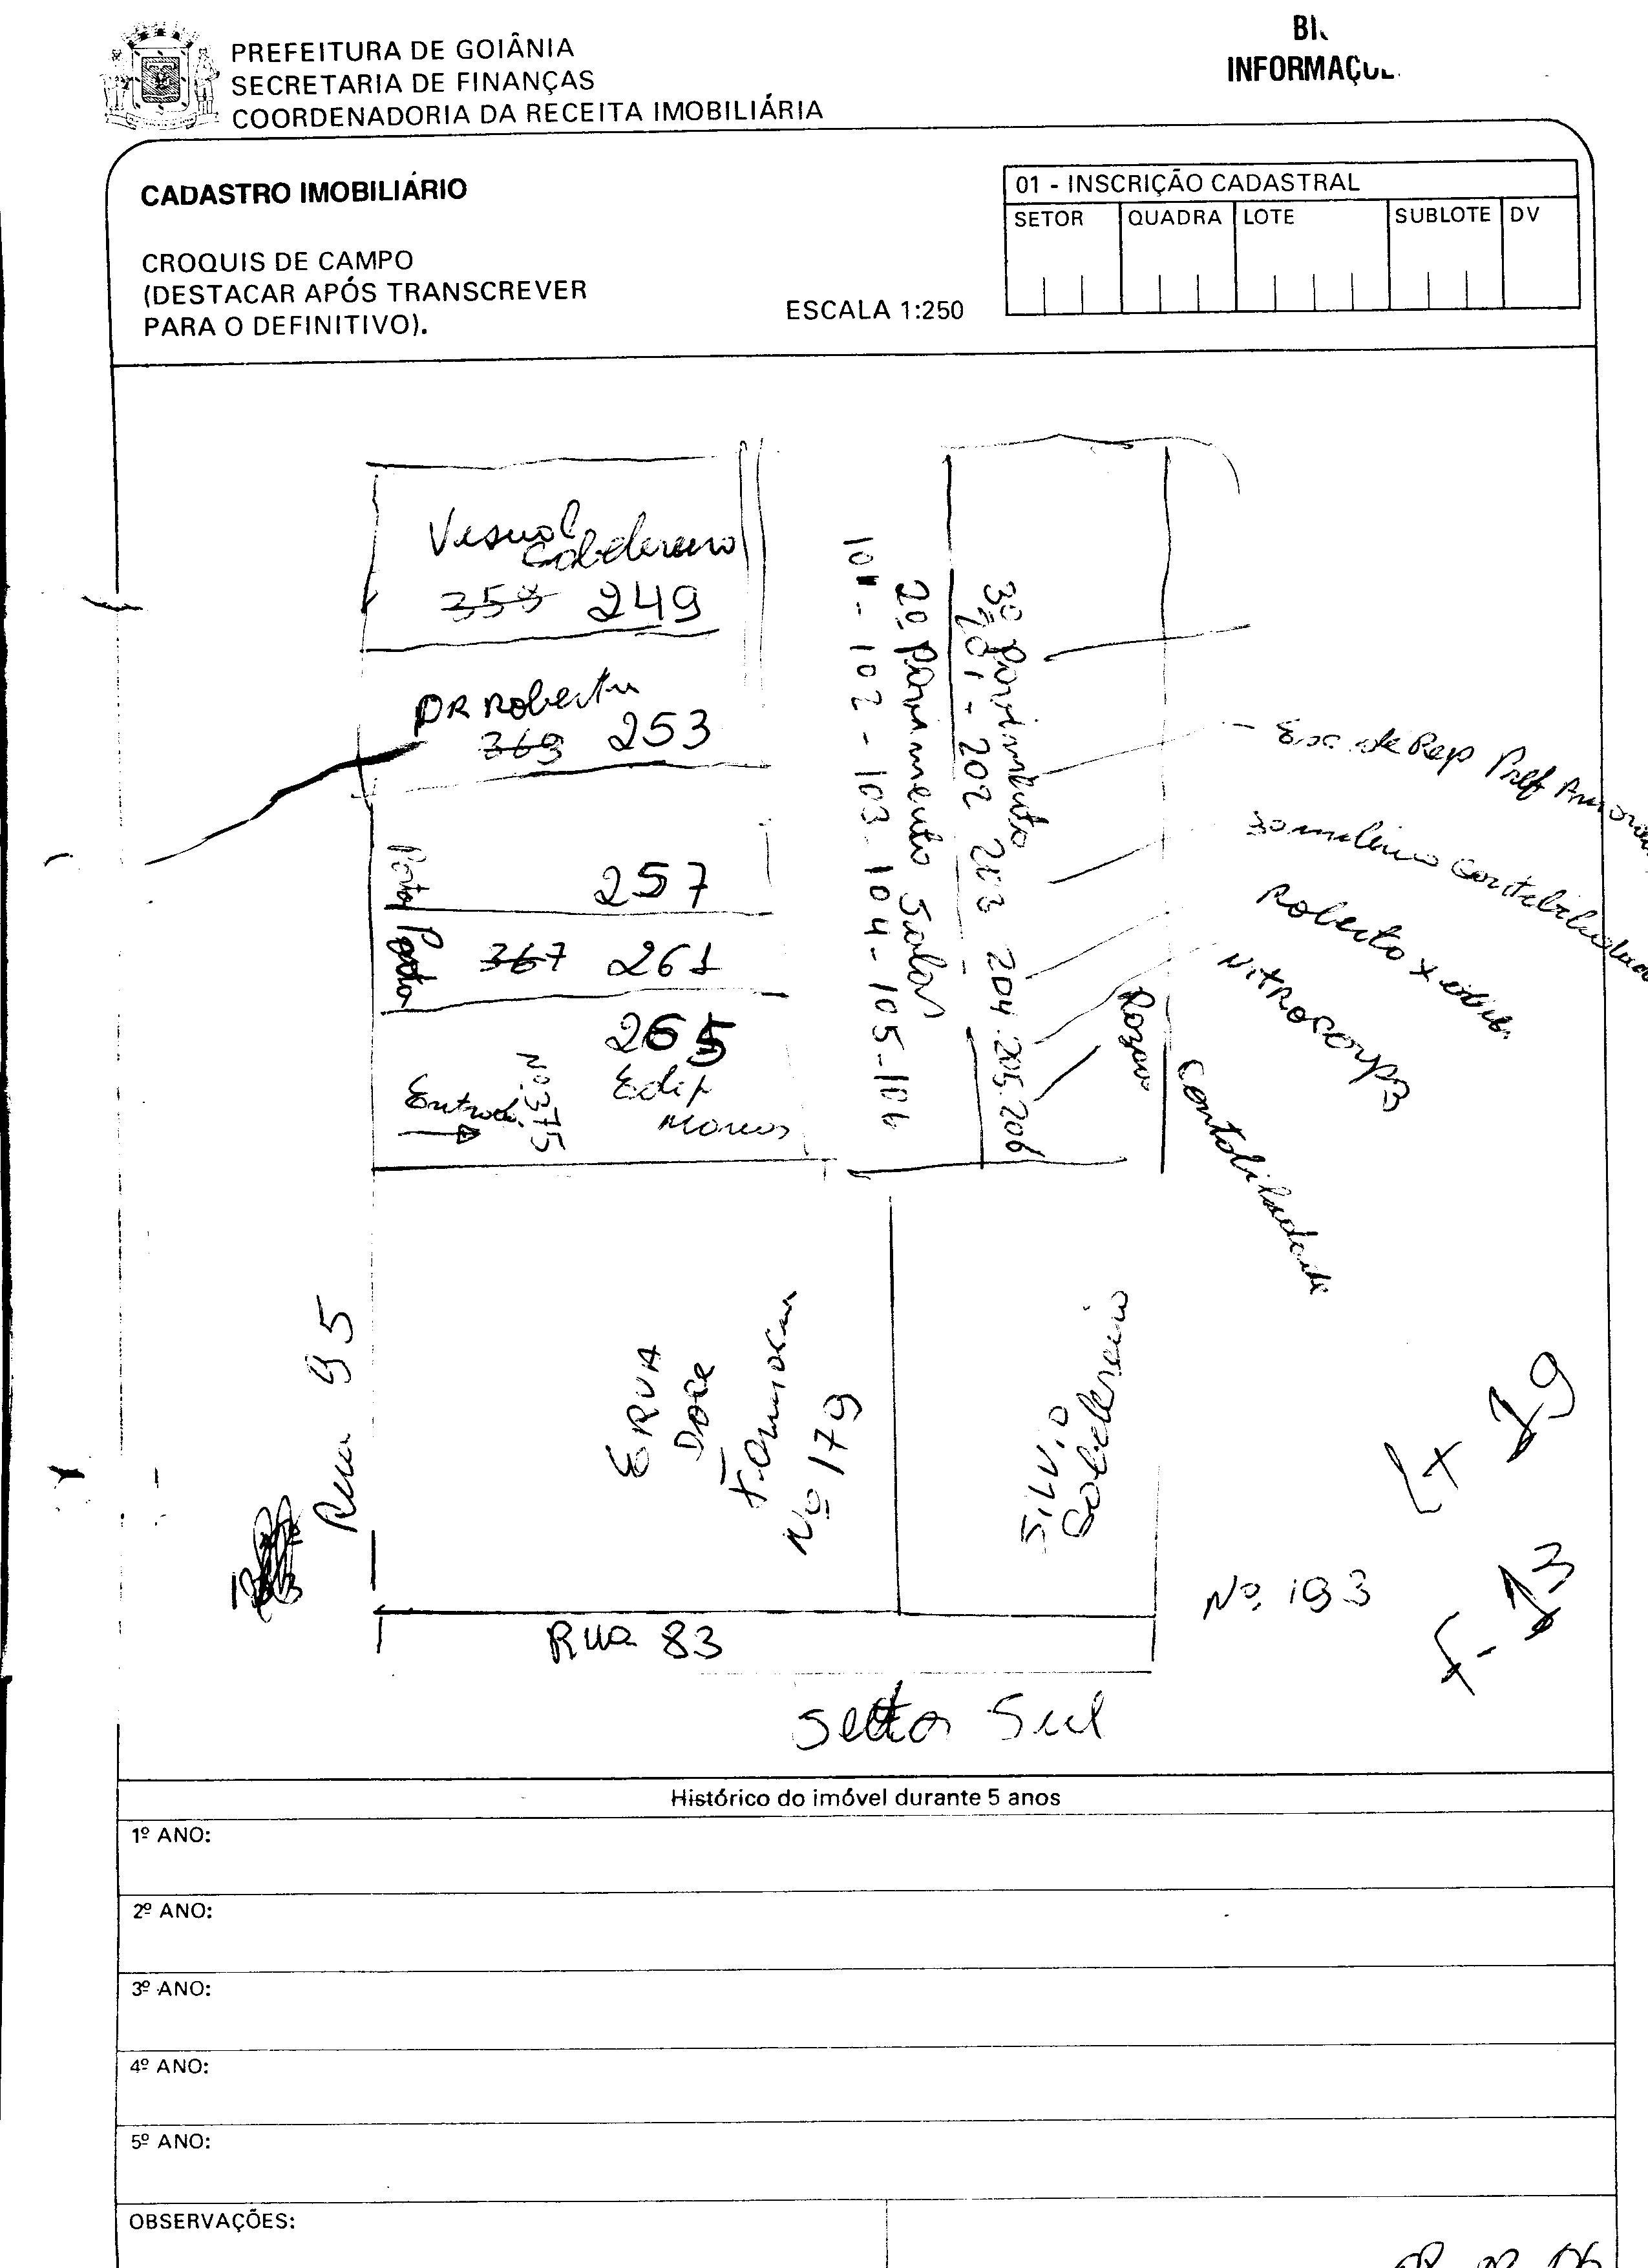 PREFEITURA DE GOIÂNIA
SECRETARIA DE FINANÇAS
COORDENADORIA DA RECEITA IMOBILIÁRIA
CADASTRO IMOBILIÁRIO
CROQUIS DE CAMPO
(DESTACAR APÓS TRANSCREVER
PARA O DEFINITIVO).
ESCALA 1:250
01 - INSCRIÇÃO CADASTRAL
SETOR QUADRA LOTE SUBLOTE DV
Visual
Cabelereiro
359 249
DR Roberto
369 253
Porta
257
Porta
367 261
265
Entrada
Nº 375
Edif
Marcos
101 - 102 - 103 - 104 - 105 - 106
2º Pavimento Salas
3º Pavimento
201 - 202 203 204 . 205 . 206
de Rep Pref
Contabilidade
Roberto x
Contabilidade
Rua 95
ERVA
Doce
Nº 179
SILVIO
Cabelereiro
Nº 193
Lt 19
F - 13
Rua 83
Setor Sul
Histórico do imóvel durante 5 anos
1º ANO:
2º ANO:
3º ANO:
4º ANO:
5º ANO:
OBSERVAÇÕES: